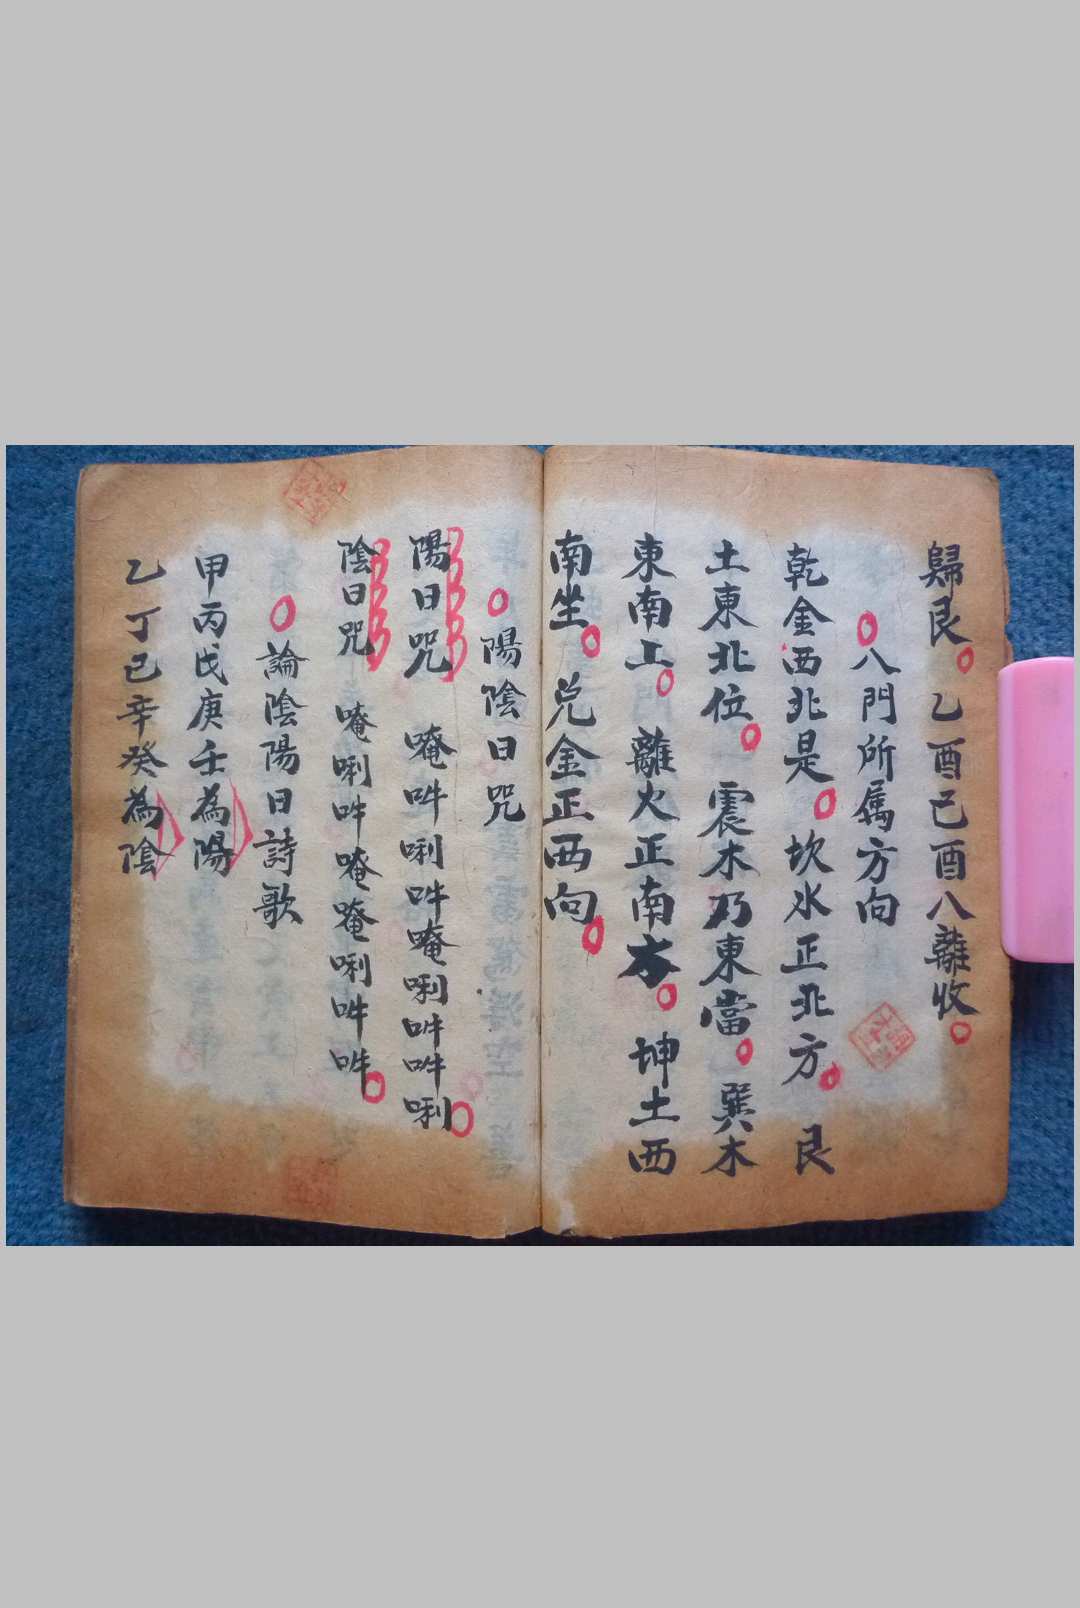 歸艮。乙酉己酉八離收。
○八門所属方向
乾金西北是。坎水正北方。艮
土東北位。震木乃東當。巽木
東南上。離火正南方。坤土西
南坐。兑金正西向。
○陽陰日咒
陽日咒 唵吽唎吽唵唎吽吽唎。
陰日咒 唵唎吽唵唵唎吽吽。
○論陰陽日詩歌
甲丙戊庚壬為陽
乙丁已辛癸為陰